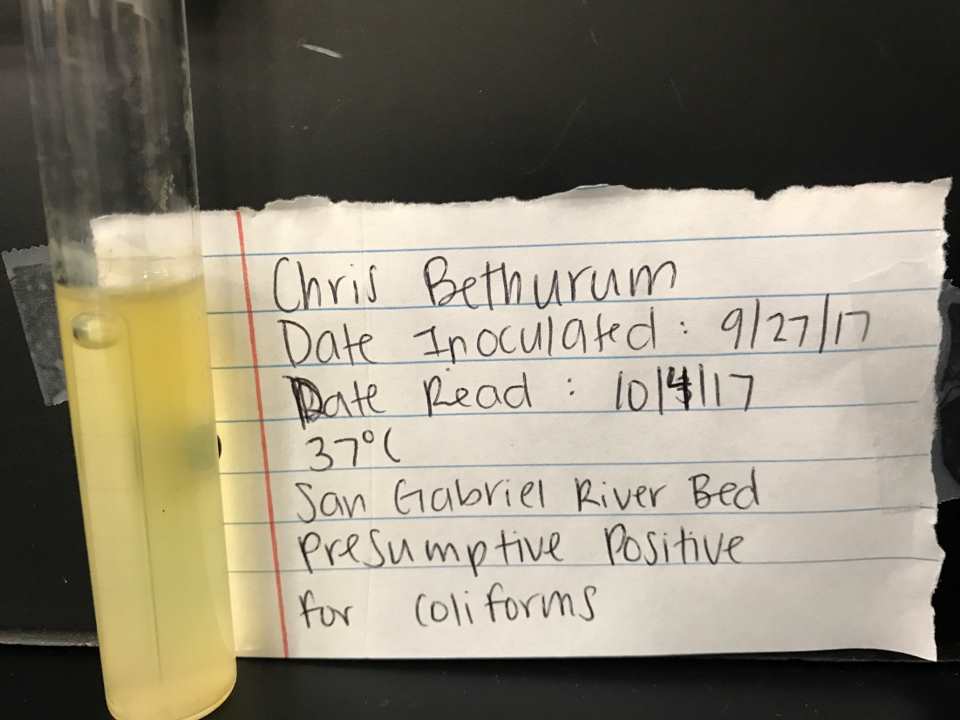 Chris Bethurum
Date Inoculated : 9/27/17
Date Read : 10/4/17
37°C
San Gabriel River Bed
Presumptive Positive
for coliforms